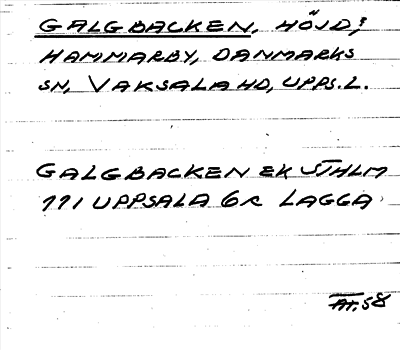 GALGBACKEN, HÖJD,
HAMMARBY, DANMARKS
SN, VAKSALA HD, UPPS.L.
GALGBACKEN EK STHLM
111 UPPSALA 6c LAGGA
58